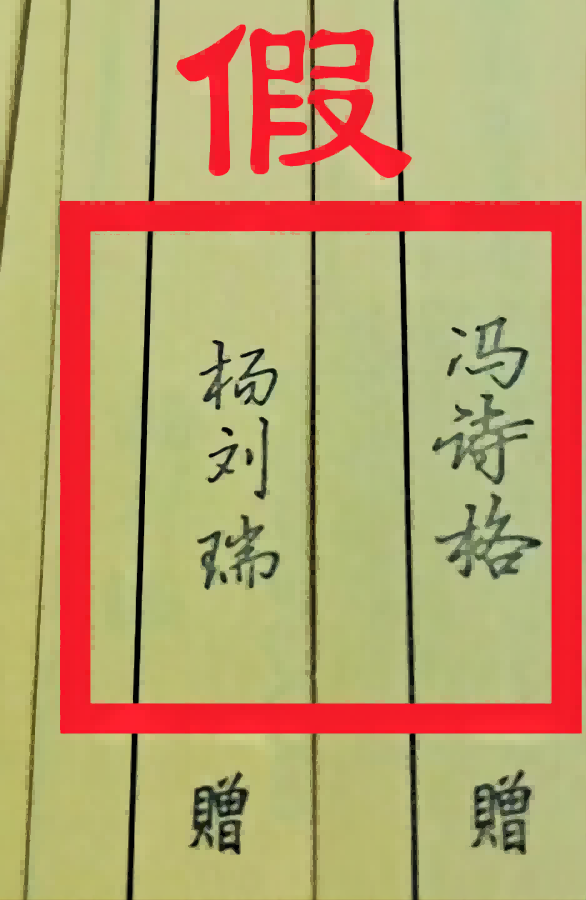 假
冯诗格
贈
杨刘瑞
贈